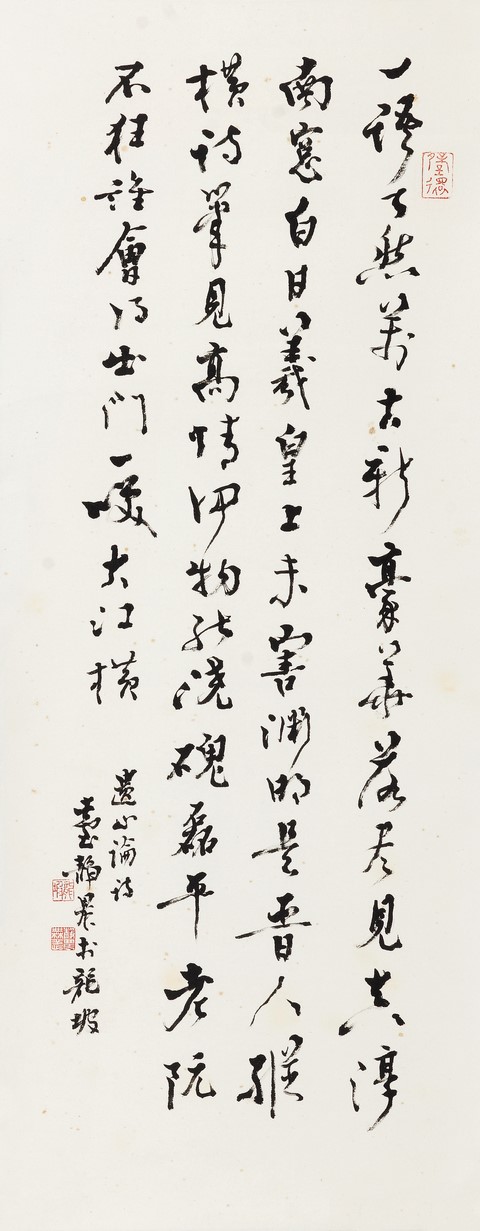 一語天然萬古新豪華落尽見真淳
南窓白日羲皇上未害淵明是晉人縱
橫詩筆見高情何物能澆磈磊平老阮
不狂誰會得出門一咲大江橫
遺山論詩
臺靜農於龍坡